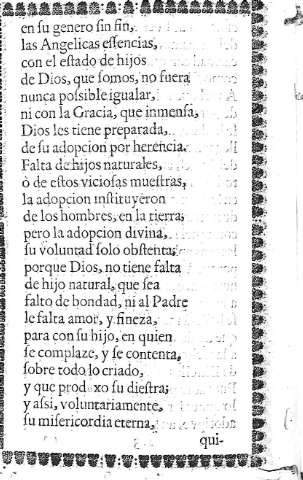 en ſu genero ſin fin,
las Angelicas eſſencias,
con el eſtado de hijos
de Dios, que ſomos, no fuera
nunca poſsible igualar,
ni con la Gracia, que inmenſa,
Dios les tiene preparada,
de ſu adopcion por herencia.
Falta de hijos naturales,
ò de eſtos vicioſas mueſtras,
la adopcion inſtituyeron
de los hombres, en la tierra;
pero la adopcion divina,
ſu voluntad ſolo obſtenta;
porque Dios, no tiene falta
de hijo natural, que ſea
falto de bondad, ni al Padre
le falta amor, y fineza,
para con ſu hijo, en quien
ſe complaze, y ſe contenta,
ſobre todo lo criado,
y que prod xo ſu dieſtra;
y aſsi, voluntariamente,
ſu misericordia eterna,
qui-